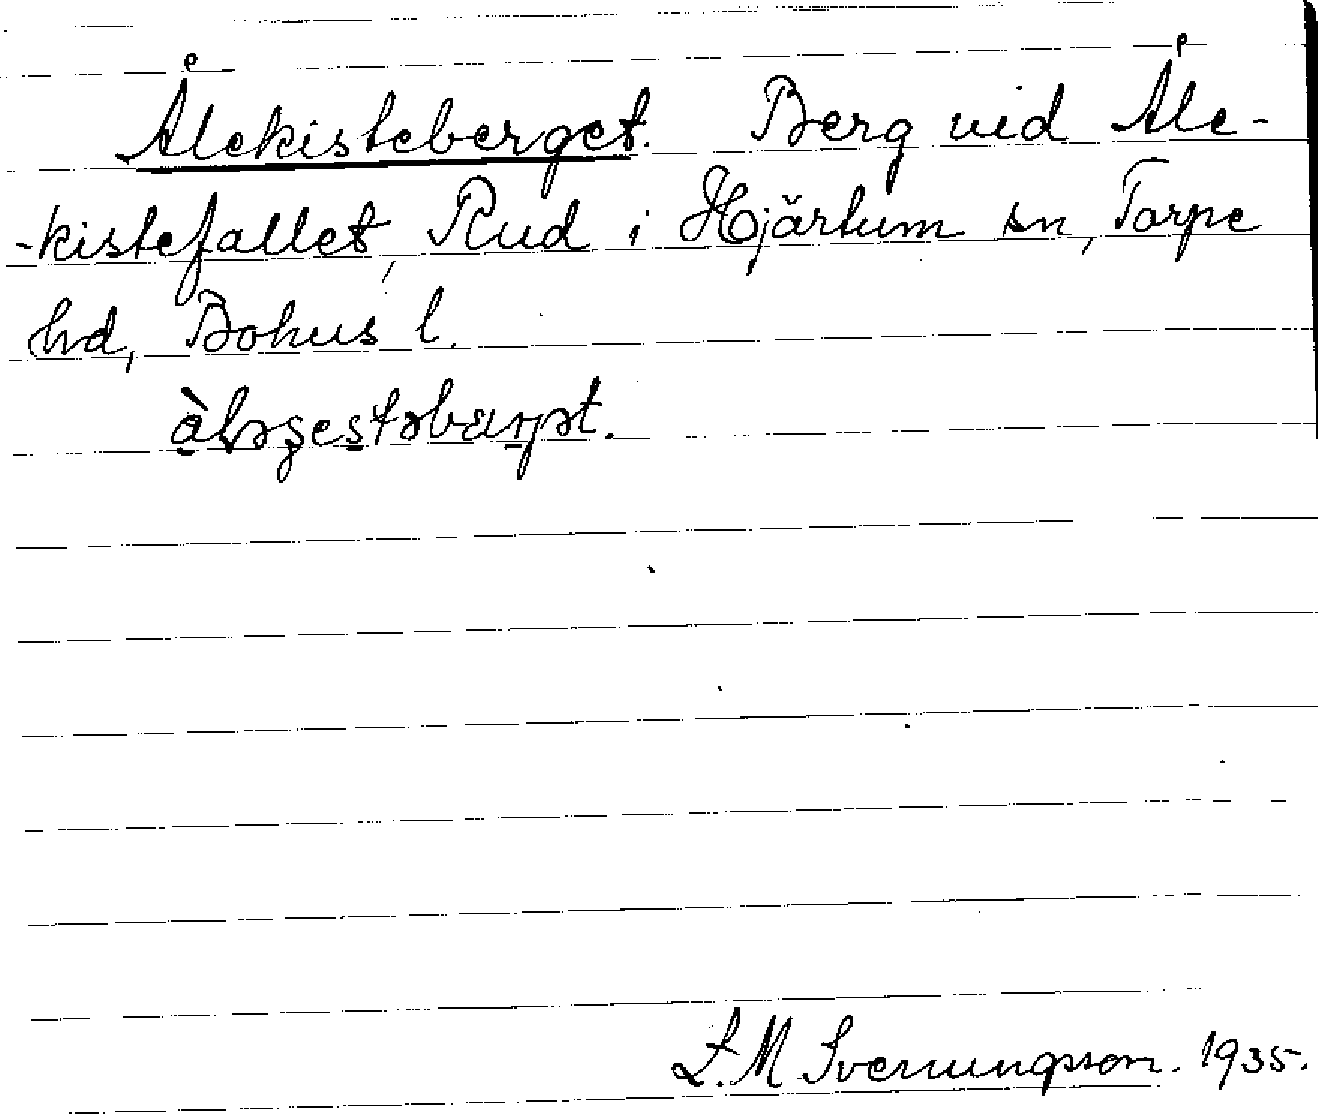 Ålekisteberget. Berg vid Åle-
-kistefallet, Rud i Hjärtum sn, Torpe
hd, Bohus l.
L. M Svenungsson. 1935.